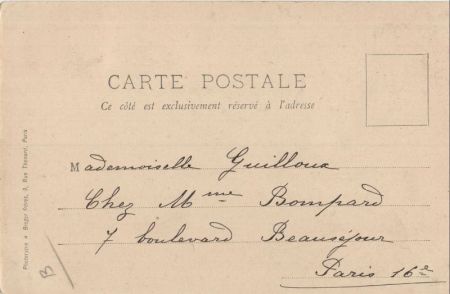 CARTE POSTALE
Ce côté est exclusivement réservé à l'adresse
Mademoiselle Guilloux
Chez Mme Bompard
7 boulevard Beauséjour
Paris 16e
9, Rue Thénard, Paris
B